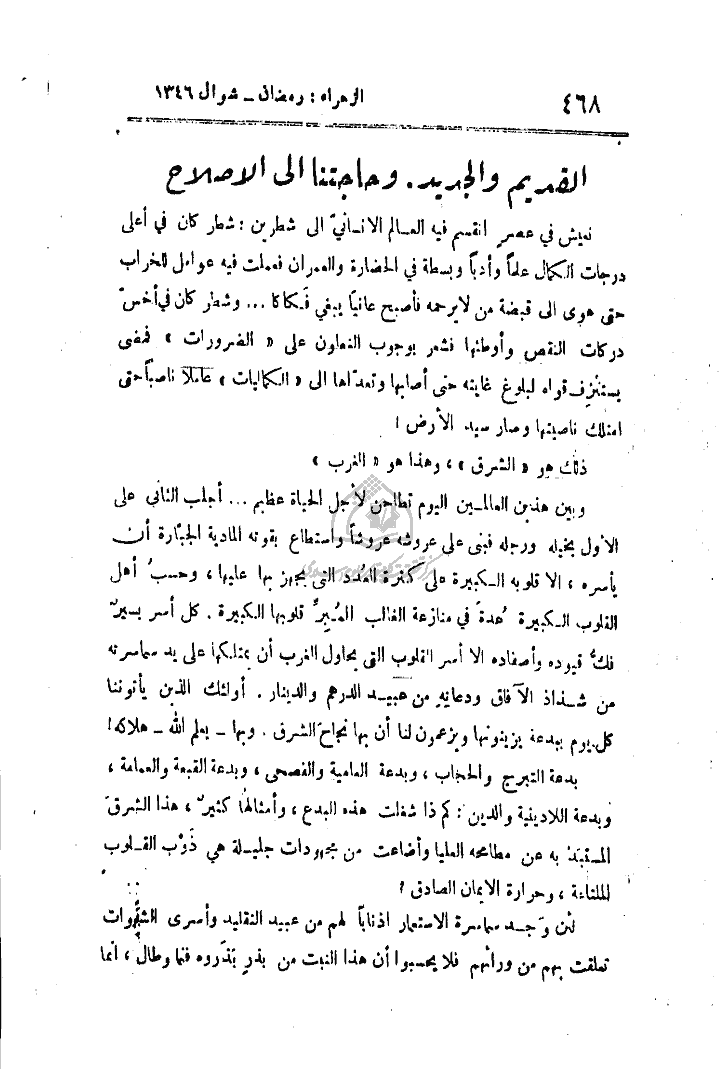 ٤٦٨
الزهراء : رمضان ـ شوال ١٣٤٦
القديم والجديد. وحاجتنا الى الاصلاح
نعيش في عصرٍ انقسم فيه العـالم الانسانيّ الى شطرين : شطر كان في أعلى
درجات الكمال علماً وأدباً وبسطة في الحضارة والعمران فعملت فيه عوامل للخراب
حتى هوى الى قبضة من لا يرحمه فأصبح عانياً يبغي فـكاكا ... وشطر كان في أخسّ
دركات النقص وأوطئها فشعر بوجوب التعاون على « الضرورات » فمضى
يستنزف قواه لبلوغ غايته حتى أصابها وتعدّاها الى « الكماليات » عاملاً ناصباً حتى
امتلك ناصيتها وصار سيد الأرض !
ذلك هو « الشرق » ، وهذا هو « الغرب »
وبين هذين العالمـين اليوم تطاحن لأجل الحياة عظيم ... أجلب الثاني على
الأول بخيله ورجله فبنى على عروشه عروشاً واستطاع بقوته المادية الجبّارة أن
يأسره ، الا قلوبه الـكبيرة على كثرة العُدد التى يجهز بها عليها ، وحسبُ أهل
القلوب الـكبيرة عُدةً في منازعة الغالب المُبِرِّ قلوبها الكبيرة . كل أسر يسيرٌ
فكُّ قيوده وأصفاده الا أسر القلوب التى يحاول الغرب أن يمتلكها على يد سماسرته
من شـذاذ الآفاق ودعاته من عبيـد الدرهم والدينار . أولئك الذين يأتوننا
كل يوم ببدعة يزينونها ويزعمون لنا أن بها نجاح الشرق . وبها ـ يعلم الله ـ هلاكه !
بدعة التبرج والحجاب ، وبدعة العامية والفصحى ، وبدعة القبعة والعمامة ،
وبدعة اللادينية والدين : كم ذا شغلت هذه البدع ، وأمثالها كثيرٌ ، هذا الشرقَ
المستبَدَّ به عن مطامحه العليا وأضاعت من مجهودات جليـلة هي ذَوْب القـلوب
الملتاعة ، وحرارة الايمان الصادق ؟
لئن وَجـد سماسرة الاستعمار اذناباً لهم من عبيد التقليد وأسرى الشهوات
تعلقت بهم من ورائهم فلا يحسبوا أن هذا النبت من بذرٍ بَذَروه فنما وطال ، انما